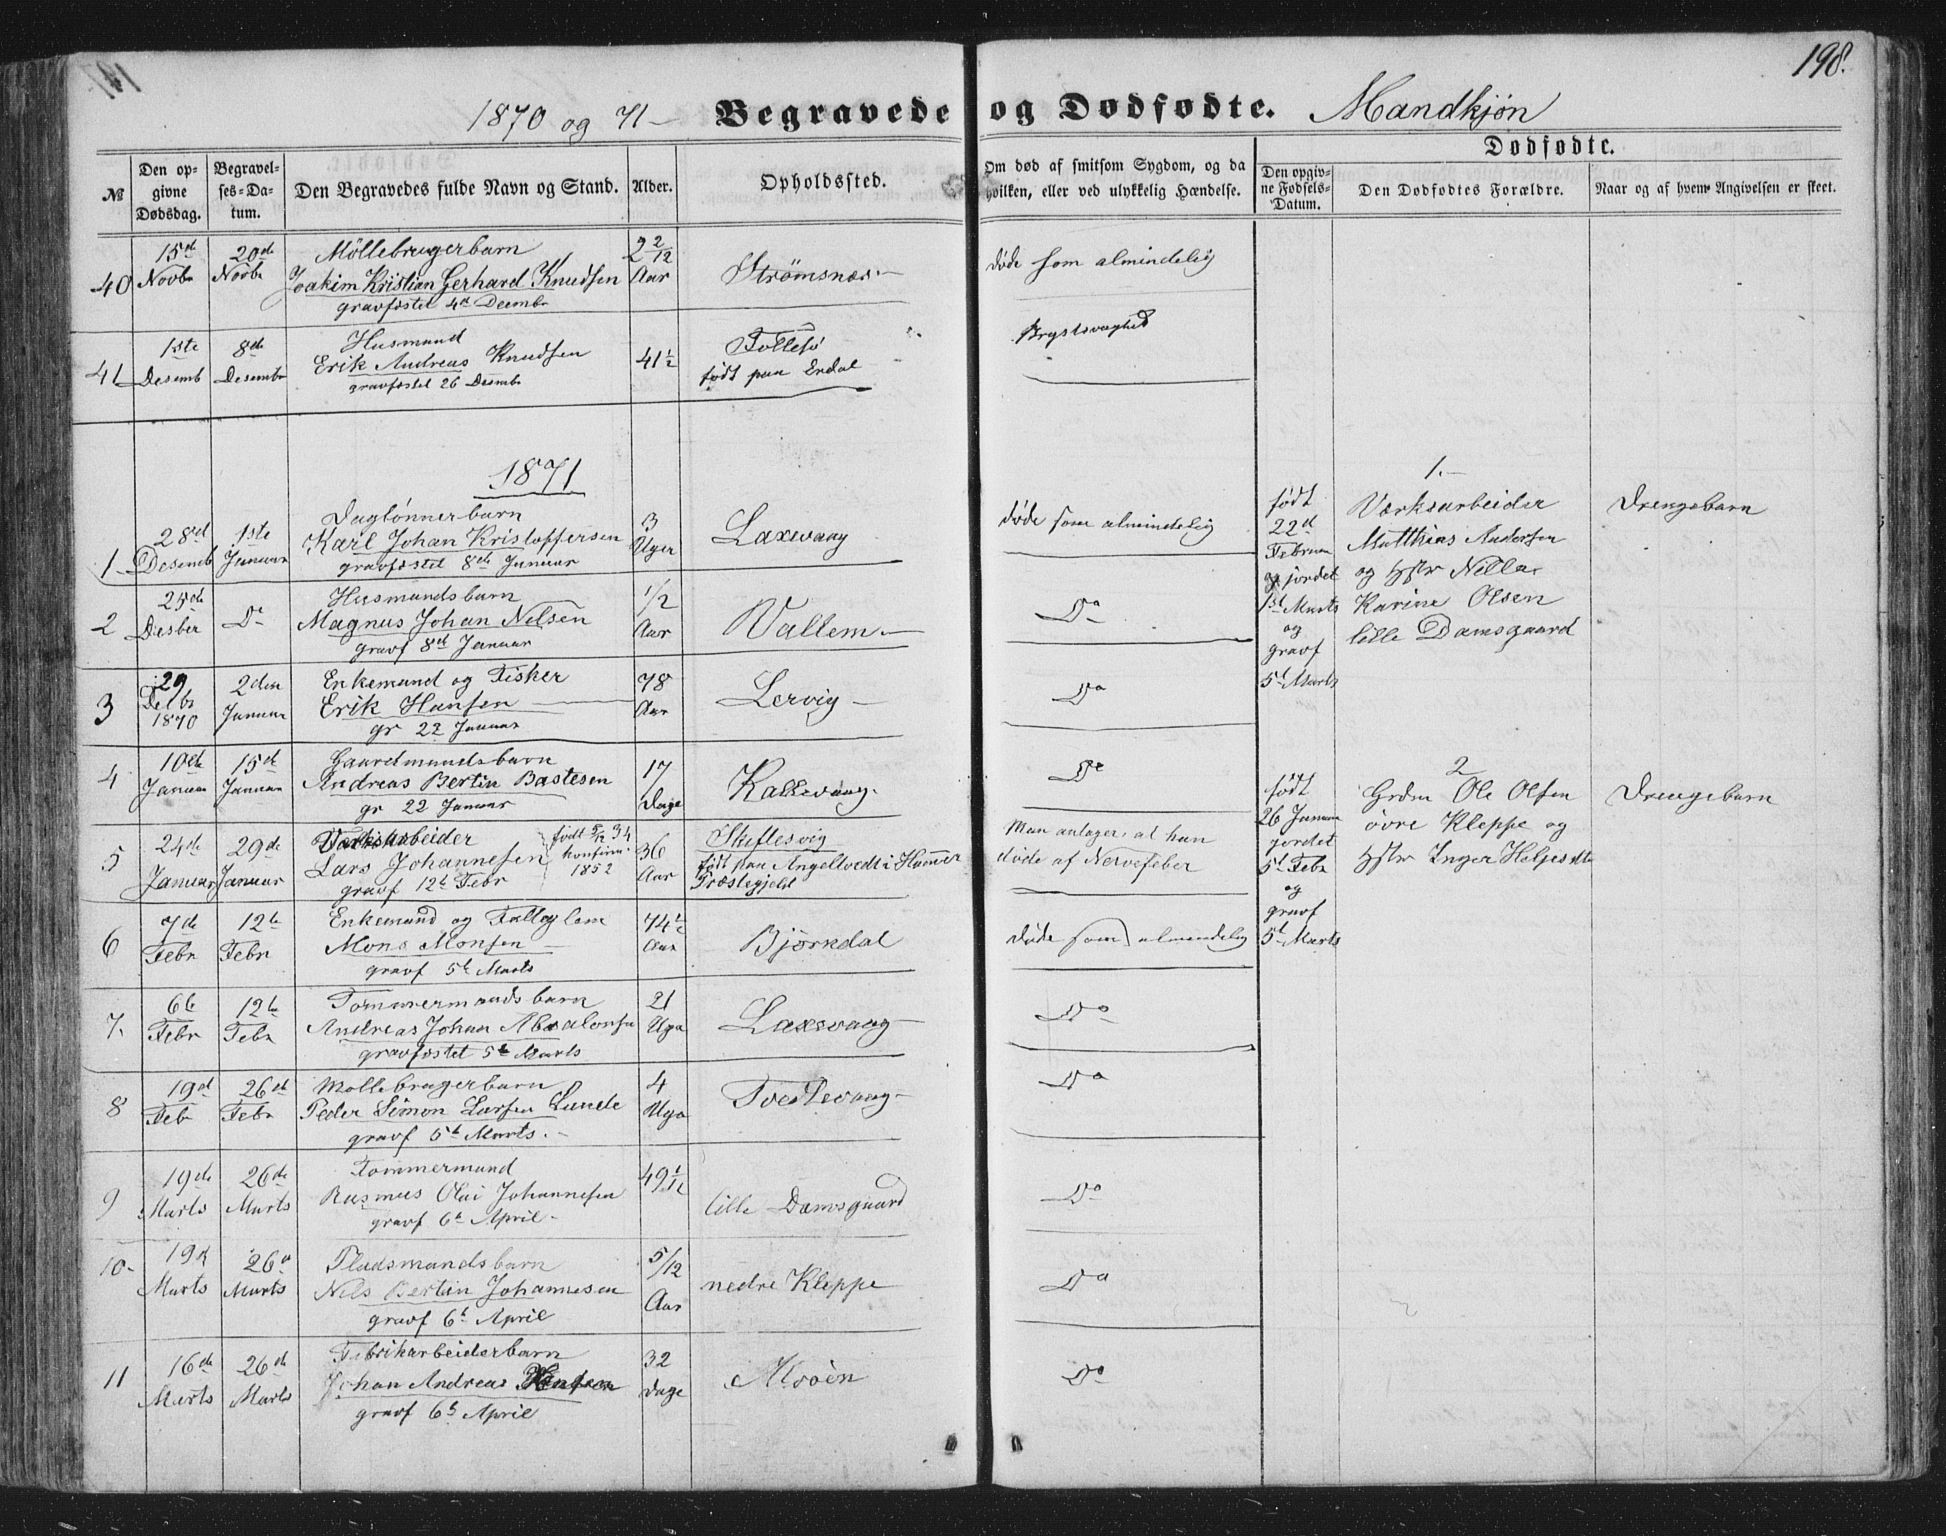 198.
1870 og 71 — Begravede og Dødfødte. Mandkjön
№ Den opgivne Dødsdag. Begravelses-Datum. Den Begravedes fulde Navn og Stand. Alder. Opholdssted. Om død af smitsom Sygdom, og da hvilken, eller ved ulykkelig Hændelse. Dødfødte. Den opgivne Fødsels-Datum. Den Dødfødtes Forældre. Naar og af hvem Angivelsen er skeet.
40 15de Novbr 20de Novbr Möllebrugerbarn 2 2/12 Aar Strömsnæs — døde som almindelig
Joakim Kristian Gerhard Knudsen
gravfæstet 4de Decembr
41 1ste Desemb 8de Desembr Husmand 41½ Brystsvaghed
Erik Andreas Knudsen født paa Erdal
gravfæstet 26 Desembr
1871
1 28de Desemb 1ste Januar Daglönnerbarn 3 Uger Laxevaag døde som almindelig
Karl Johan Kristoffersen
gravfæstet 8de Januar
2 25de Desber Do Husmandsbarn 1/2 Aar Vallem — Do
Magnus Johan Nelsen
gravf 8de Januar
3 29 Delbr 1870 2den Januar Enkemand og Fisker 78 Aar Lervig — Do
Erik Hansen
gr 22 Januar
4 10de Januar 15de Januar Gaardmandsbarn 17 Dage Kallevaag. Do
Andreas Bertin Bastesen
gr 22 Januar
5 24de Januar 29de Januar Værksarbeider født 5/12 34 36 Aar Skiftesvig Man antager, at han
Lars Johannesen konfirm. 1852 født paa Angeltvedt i Hammer Præstegjeld døde af Nervefeber
gravf 12te Febr
6 7de Febr 12te Febr Enkemand og Fattiglem 74½ Aar Björndal døde som almendelig
Mons Monsen —
gravf 5te Marts
7. 6te Febr 12te Febr Tømmermandsbarn 21 Uge Laxevaag — Do
Andreas Johan Absalonsen
gravfæstet 5te Marts
8 19de Feb 26de Febr Möllebrugerbarn 4 Uge Do
Peder Simon Larsen Lunde
gravf 5te Marts. —
9 19de Marts 26de Marts Tömmermand 49 1/12 lille Damsgaard Do
Rasmus Olai Johannesen
gravf 6te April —
10 — 19de Marts 26de Marts Pladsmandsbarn 5/12 Aar nedre Kleppe Do
Nils Bertin Johannesen
gravf 6te April
11 16de Marts 26de Marts Fabrikarbeiderbarn 32 Dage Do
Johan Andreas Hansen
gravf 6te April
1. —
født 22de Februar og jordet 1ste Marts og gravf 5te Marts
Værksarbeider
Matthias Andersen
og Hstr Nella
Karine Olsen
lille Damsgaard
Drengebarn
2
født 26 Januar jordet 5te Febr og gravf 5te Marts
Grdm Ole Olsen
övre Kleppe og
Hstr Inger Helgesdtr
Drengebarn